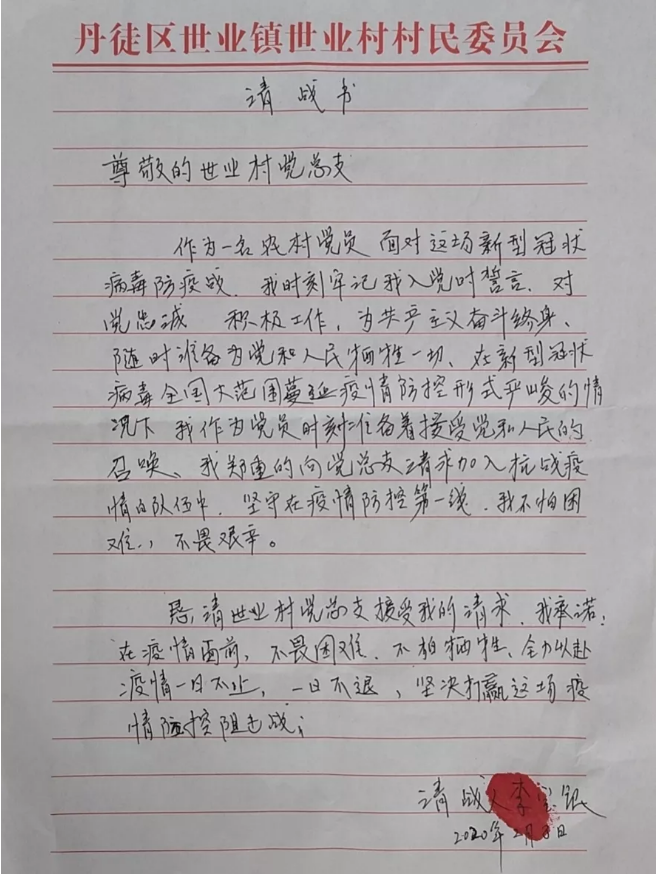 丹徒区世业镇世业村村民委员会
请战书
尊敬的世业村党总支
作为一名农村党员 面对这场新型冠状
病毒防疫战.我时刻牢记我入党时誓言.对
党忠诚 积极工作,为共产主义奋斗终身、
随时准备为党和人民牺牲一切、在新型冠状
病毒全国大范围蔓延疫情防控形式严峻的情
况下 我作为党员时刻准备着接受党和人民的
召唤、我郑重的向党总支请求加入抗战疫
情的队伍中.坚守在疫情防控第一线.我不怕困
难,不畏艰辛。
恳请世业村党总支接受我的请求.我承诺:
在疫情面前,不畏困难.不怕牺牲、全力以赴
疫情一日不止,一日不退,坚决打赢这场疫
情防控阻击战;
请战人李宝银
2020年2月8日